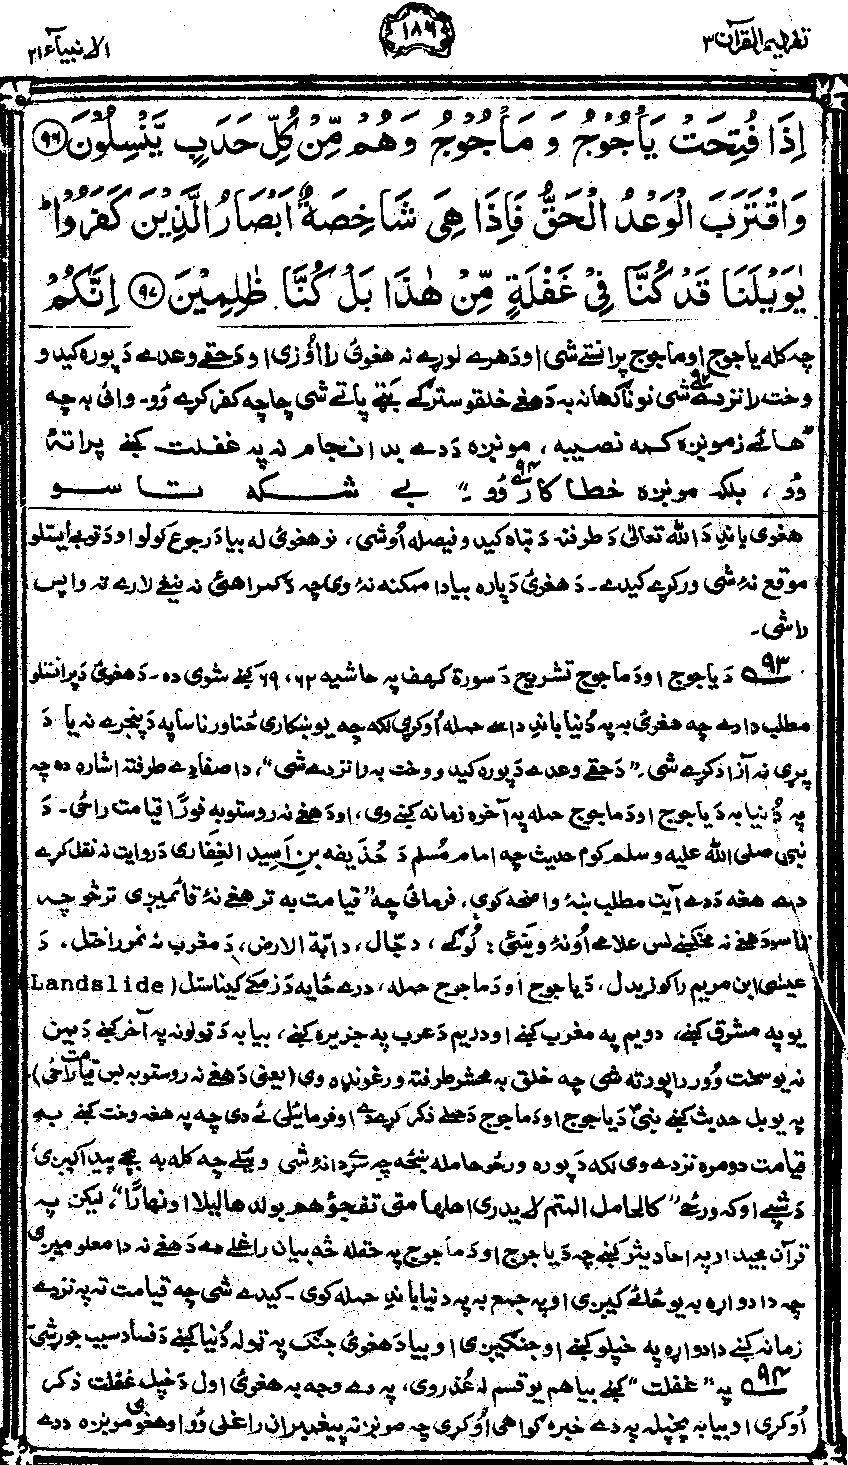 تفهيم القرآن ٣
١٨٩
الانبيآء ٢١
اِذَا فُتِحَتْ يَاْجُوْجُ وَ مَاْجُوْجُ وَهُمْ مِّنْ كُلِّ حَدَبٍ يَّنْسِلُوْنَ ﴿٩٦﴾
وَاقْتَرَبَ الْوَعْدُ الْحَقُّ فَاِذَا هِىَ شَاخِصَةٌ اَبْصَارُ الَّذِيْنَ كَفَرُوْاؕ
يٰوَيْلَنَا قَدْ كُنَّا فِىْ غَفْلَةٍ مِّنْ هٰذَا بَلْ كُنَّا ظٰلِمِيْنَ ﴿٩٧﴾ اِنَّكُمْ
چه كله ياجوج اوماجوج پرانستے شى اودهرے لورے نه هغوئ رااوزى اودحقے وعدے دپوره كيدو
وخت رانزدے شى نوناګهانه به دهغے خلقو سترګے بټے پاتے شى چا چه كفر كړے وو۔ وائى به چه
"هائے زمونږه كمه نصيبه، مونږه ددے بد انجام نه په غفلت كښے پراتهٔ
وو، بلكه مونږه خطا كار وو" ٩٤ بے شكه تاسو
هغوى باندِ دَ الله تعالىٰ دطرفنه دتباه كيدو فيصله اوشى، نو هغوئ له بيا درجوع كولو اودتوبے ايستلو
موقع نهٔ شى وركړے كيدے۔ دهغوئ دپاره بيا دا ممكنه نهٔ وى چه دګمراهئ نه نيغے لارے ته واپس
راشى۔
٩٣ دياجوج اودماجوج تشريح دسورة كهف په حاشيه ٦٢، ٦٩ كښے شوى ده۔ دهغوئ دپرانستلو
مطلب دا دے چه هغوئ به په دُنيا باندِ داسے حمله اوكړى لكه چه يو ښكارى ځناور ناساپه دپنجرے نه يا د
پړى نه آزاد كړے شى۔ "دحقے وعدے دپوره كيدو وخت به رانزدے شى"، دا صفا دے طرفته اشاره ده چه
په دُنيا به دياجوج اودماجوج حمله په آخره زمانه كښے وى، اودهغے نه روستو به فورًا قيامت راځى۔ د
نبى صلى الله عليه وسلم كوم حديث چه امام مسلم د حُذيفه بن اَسيد الغِفارى دروايت نه نقل كړے
دے هغه ددے آيت مطلب ښهٔ واضحه كوى، فرمائى چه "قيامت به ترهغے نهٔ قائميږى ترڅو چه
تاسو دهغے نه مخكښے لس علامے اُونهٔ وينئ: لوګے، دجّال، دابّة الارض، دمغرب نه نمر راختل، د
عيسٰى ابن مريم راكوزيدل، دياجوج اودماجوج حمله، درے ځايه دزمكے كيناستل (Landslide)
يو په مشرق كښے، دويم په مغرب كښے اودريم دعرب په جزيره كښے، بيا به دټولو نه په آخر كښے ديمن
نه يو سخت وور راپورته شى چه خلق به محشر طرفته ورغونډه وى (يعنى دهغے نه روستو به بس قيامت راځى)۔
په يو بل حديث كښے نبىؐ دياجوج اودماجوج دحملے ذكر كړے دے اوفرمائيلى ئے دى چه په هغه وخت كښے به
قيامت دومره نزدے وى لكه دپوره ورځو حامله ښځه چه سړے دا نهٔ شى وئيلے چه كله به بچے پيدا كړى،
دشپے اوكه ورځے "كالحامل المتم لا يدرى اهلها متى تفجؤهم بولدها ليلا او نهارًا"، ليكن په
قرآن مجيد او په احاديثو كښے چه دياجوج اودماجوج په حقله څه بيان راغلے دے دهغے نه دا معلوميږى
چه دا دواړه به يو ځائے كيږى او په جمع به په دنيا باندِ حمله كوى۔ كيدے شى چه قيامت ته په نزدے
زمانه كښے دا دواړه په خپلو كښے اوجنګيږى او بيا دهغوئ جنګ په ټوله دُنيا كښے دفساد سبب جوړ شى
٩٤ په "غفلت" كښے بيا هم يو قسم له عُذر وى، په دے وجه به هغوئ اول دخپل غفلت ذكر
اُوكړى او بيا به پخپله په دے خبره ګواهى اُوكړى چه مونږ ته پيغمبران راغلى وُو اوهغوى مونږه ددے